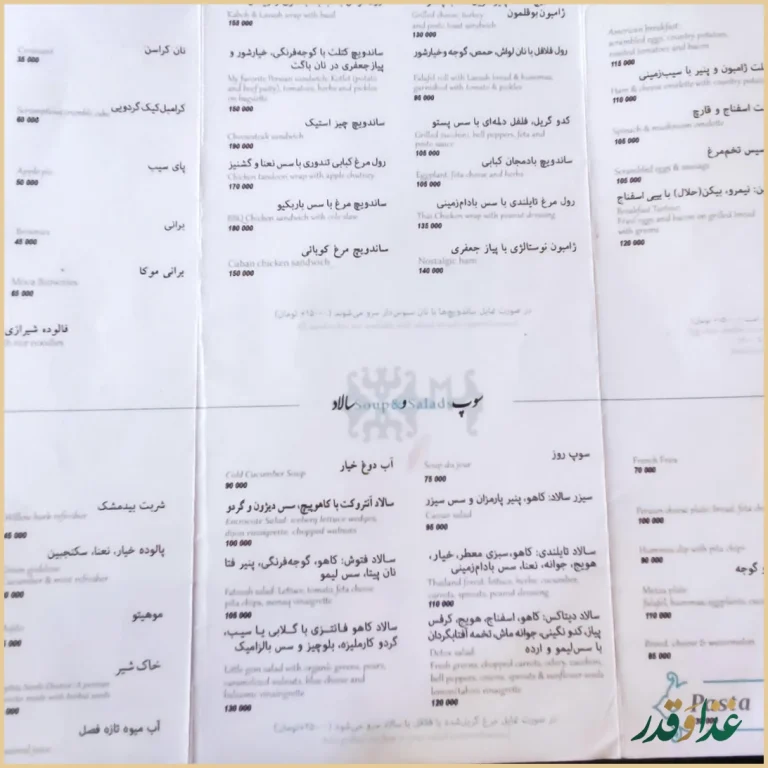 Croissant
نان کراسن
35 000
کرامبل‌کیک گردویی
60 000
Apple pie
پای سیب
50 000
Brownies
برانی
45 000
Mocca Brownies
برانی موکا
65 000
فالوده شیرازی
Kabob & Lavash wrap with basil
150 000
ساندویچ کتلت با گوجه‌فرنگی، خیارشور و
پیاز جعفری در نان باگت
My favorite Persian sandwich: Kotlet (potato
and beef patty), tomatoes, herbs and pickles
on baguette
150 000
ساندویچ چیز استیک
Cheesesteak sandwich
190 000
رول مرغ کبابی تندوری با سس نعنا و گشنیز
Chicken tandoori wrap with apple chutney
170 000
ساندویچ مرغ با سس باربکیو
BBQ Chicken sandwich with cole slaw
180 000
ساندویچ مرغ کوبائی
Cuban chicken sandwich
150 000
ژامبون بوقلمون
Grilled cheese, turkey
and pesto toast sandwich
130 000
رول فلافل با نان لواش، حمص، گوجه و خیارشور
Falafel roll with Lavash bread & hummus
garnished with tomato & pickles
95 000
کدو گریل، فلفل دلمه‌ای با سس پستو
Grilled zucchini, bell peppers, feta and
pesto sauce
105 000
ساندویچ بادمجان کبابی
Eggplant, feta cheese and herbs
105 000
رول مرغ تایلندی با سس بادام‌زمینی
Thai Chicken wrap with peanut dressing
135 000
ژامبون نوستالژی با پیاز جعفری
Nostalgic ham
140 000
در صورت تمایل ساندویچ‌ها با نان سبوس‌دار سرو می‌شوند
American breakfast:
scrambled eggs, country potatoes,
roasted tomatoes and bacon
115 000
ژامبون و پنیر با سیب‌زمینی
Ham & cheese omelette with country
110 000
اسفناج و قارچ
Spinach & mushroom omelette
105 000
تخم‌مرغ
Scrambled eggs & sausage
105 000
نیمرو، بیکن(حلال) با بیبی اسفناج
Breakfast Tartine:
Fried eggs and bacon on grilled bread
with greens
120 000
سوپ و سالاد
Soup & Salad
شربت بیدمشک
45 000
پالوده خیار، نعنا، سکنجبین
cucumber & mint refresher
موهیتو
خاک شیر
آب میوه تازه فصل
آب دوغ خیار
Cold Cucumber Soup
90 000
سالاد آنتروکت با کاهوپیچ، سس دیژون و گردو
Entrecote Salad: iceberg lettuce wedges,
dijon vinaigrette, chopped walnuts
100 000
سالاد فتوش: کاهو، گوجه‌فرنگی، پنیر فتا
نان پیتا، سس لیمو
Fatoush salad: Lettuce, tomato, feta cheese
pita chips, sumaq vinaigrette
105 000
سالاد کاهو فانتزی با گلابی یا سیب،
گردو کارملیزه، بلوچیز و سس بالزامیک
Little gem salad with organic greens, pears,
caramelized walnuts, blue cheese and
balsamic vinaigrette
130 000
سوپ روز
Soup du jour
75 000
سیزر سالاد: کاهو، پنیر پارمزان و سس سیزر
Caesar salad
95 000
سالاد تایلندی: کاهو، سبزی معطر، خیار،
هویج، جوانه، نعنا، سس بادام‌زمینی
Thailand forest: lettuce, herbs, cucumber,
carrots, sprouts, peanut dressing
110 000
سالاد دیتاکس: کاهو، اسفناج، هویج، کرفس
پیاز، کدو نگینی، جوانه ماش، تخمه آفتابگردان
با سس‌لیمو و ارده
Detox salad
Fresh greens, chopped carrots, celery, zucchini,
bell peppers, onions, sprouts & sunflower seeds
lemon/tahini vinaigrette
120 000
در صورت تمایل مرغ گریل‌شده یا فلافل با سالاد سرو می‌شود
French Fries
70 000
Persian cheese plate: bread, feta
100 000
Hummus dip with pita chips
90 000
و گوجه
Mezza plate
Falafel, hummus, eggplant
110 000
Bread, cheese & watermelon
85 000
Pasta
غذا و قدر